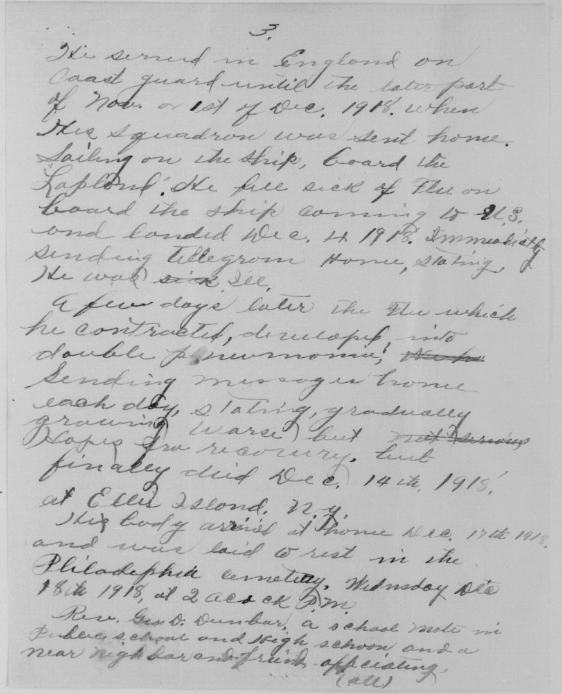 3.
He served in England on
Coast guard until the later part
of Nov. or 1st of Dec. 1918. when
His squadron was sent home.
Sailing on the ship, board the
"Lapland". He fell sick of Flu on
board the ship coming to U.S.
and landed Dec. 4 1918. Immediatly
sending tellegrom Home, stating,
He was sick Ill.
A few days later the Flu which
he contracted, developed, into
double pneumonia,
Sending messages home
each day, stating, gradually
growing warse but not serious
Hopes for recovery, but
finally died Dec. 14th, 1918.
at Ellis Island, N.y.
His body arrived at home Dec. 17th 1918.
and was laid to rest in the
Philadephia cemetery, Wednsday Dec
18th 1918, at 2 aclock P.M.
Rev. Geo. D. Dunbar, a school mate in
Public school and High school and a
near neighbor and friend officiating
(all)